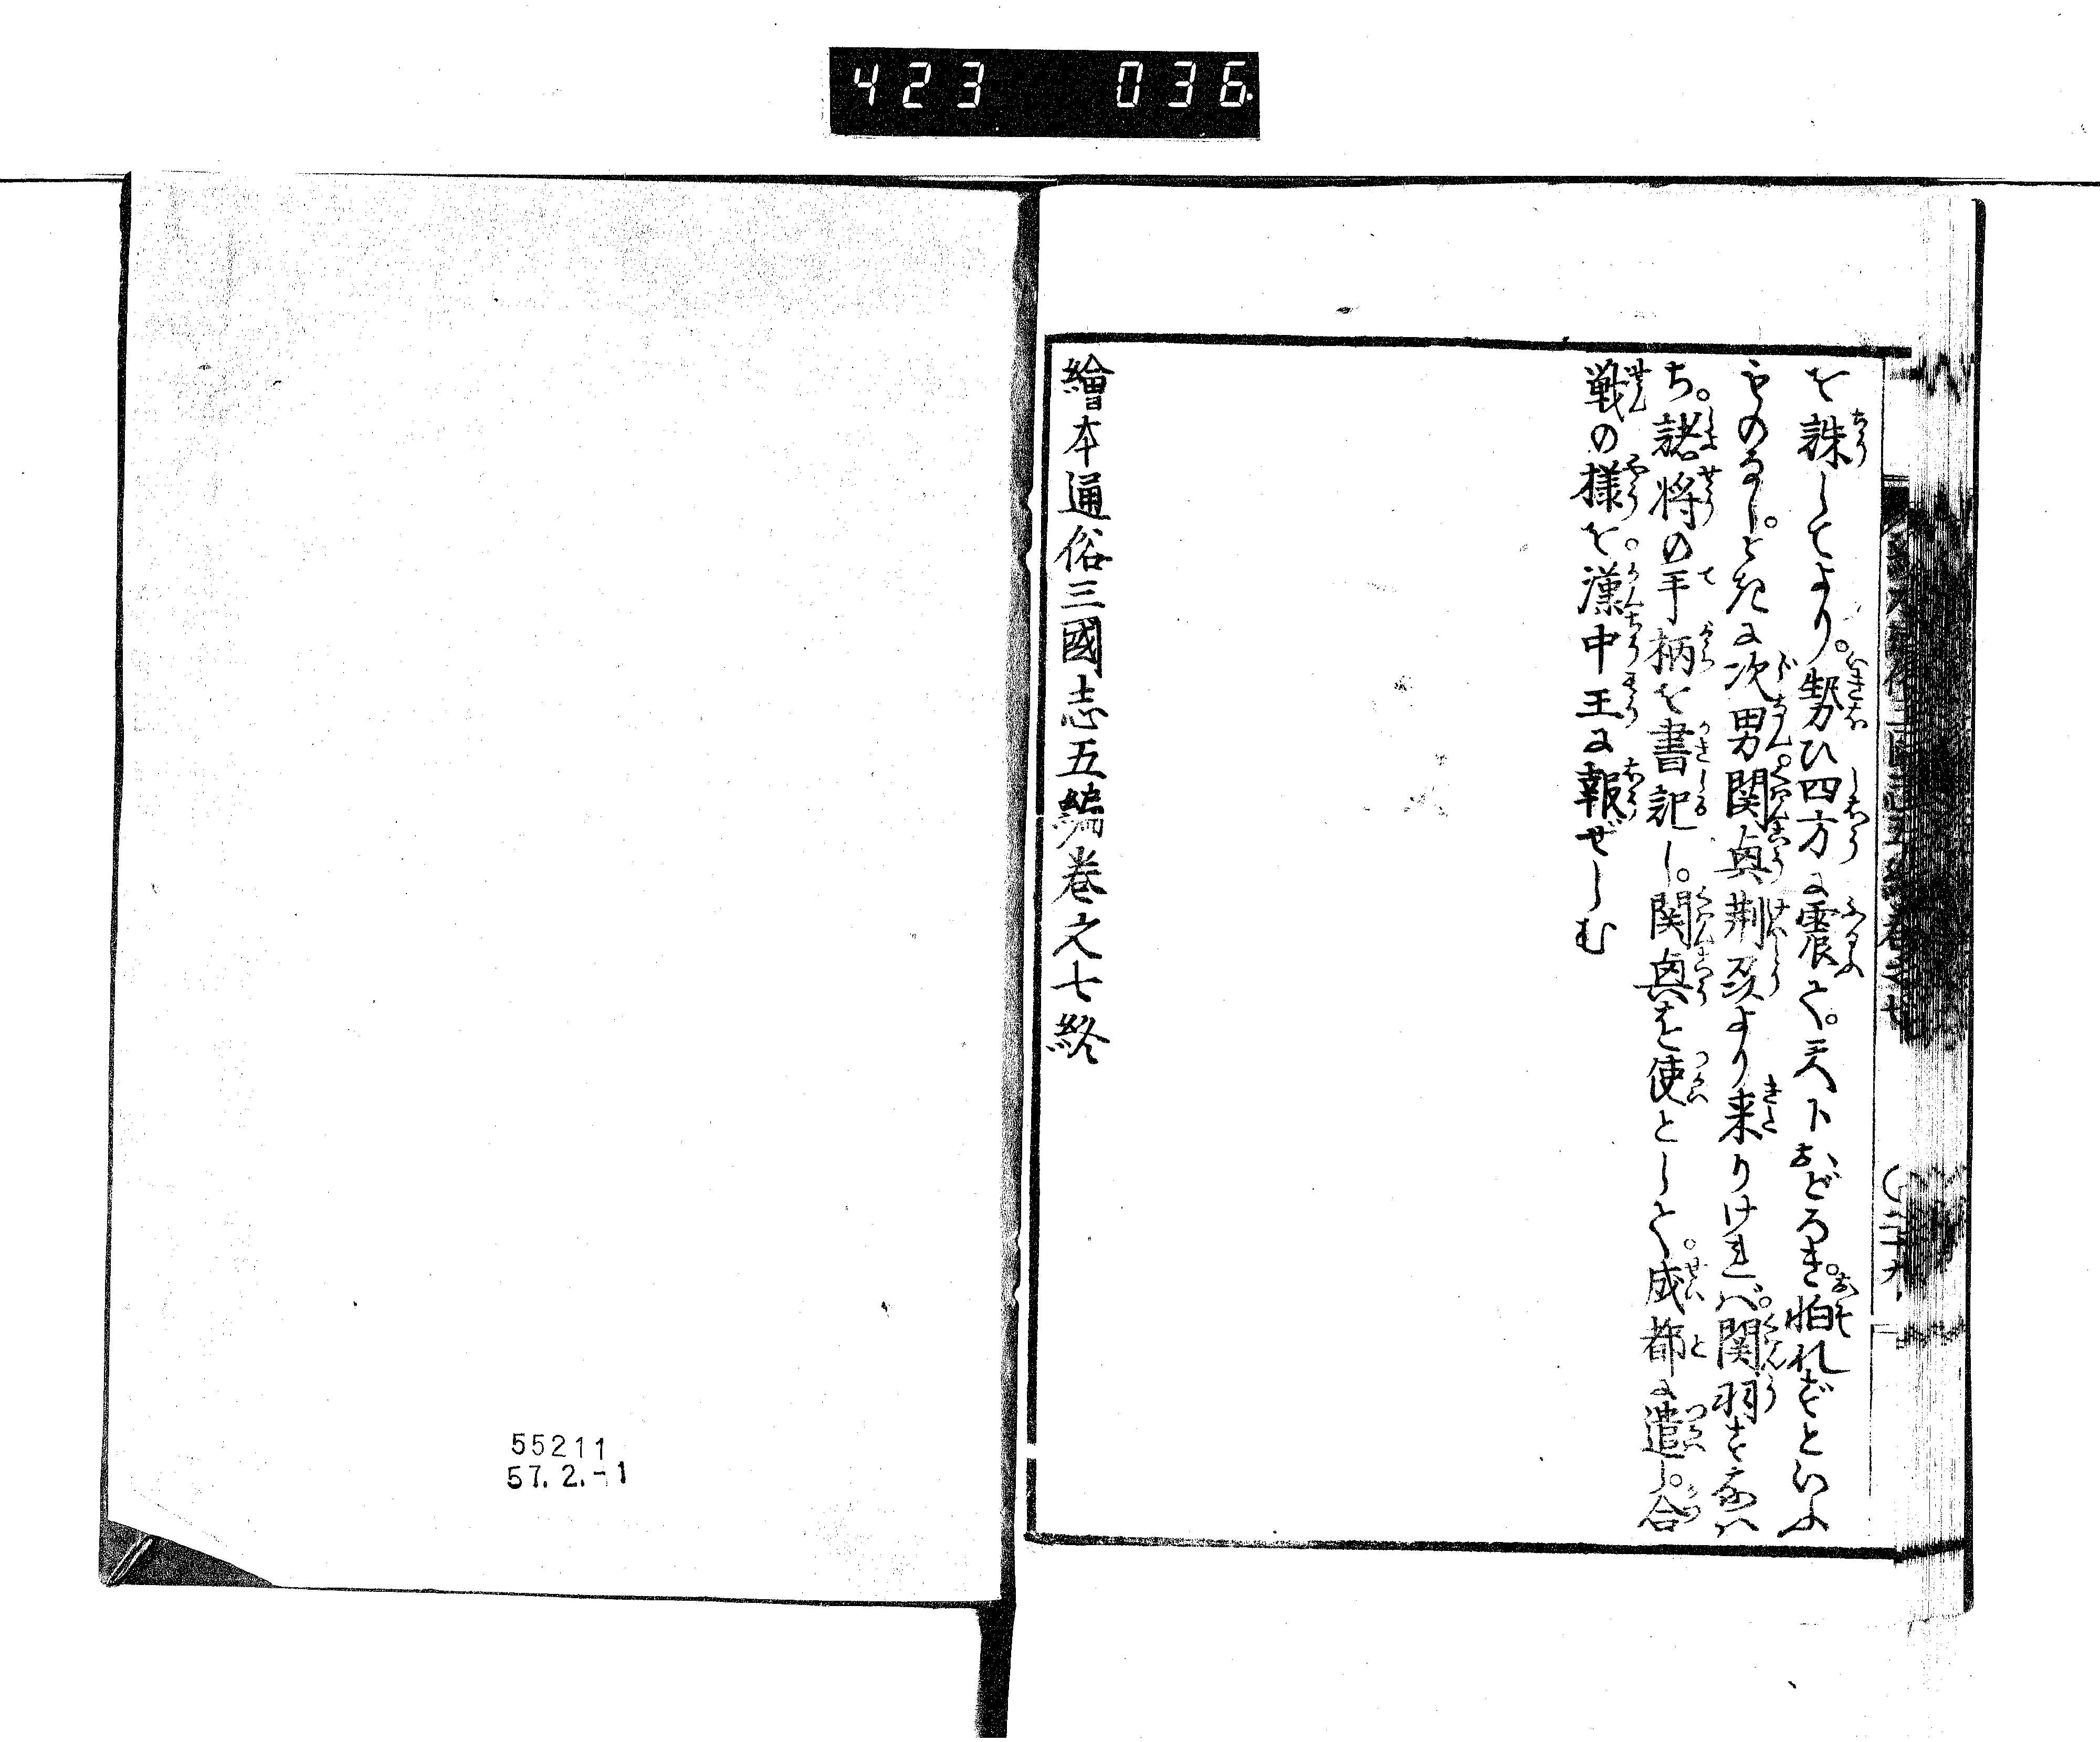 423 036
を誅してより。勢ひ四方に震て。天下おどろき。怕れずといふ
ものなし。ときに次男関興荊州より来りけれバ。関羽すなハ
ち。諸将の手柄を書記し。関興を使として。成都に遣し。合
戦の様を。漢中王に報ぜしむ
繪本通俗三國志五編巻之七終
55211
57.2.-1